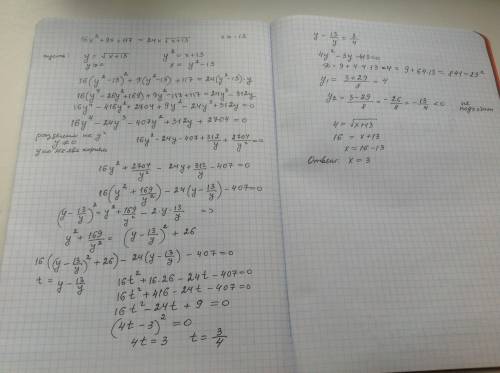 16x² + 9x + 117 = 24x √x+13    x ≥ -13
пусть: y = √x+13    y² = x+13
y ≥ 0    x = y² - 13
16(y²-13)² + 9(y²-13) + 117 = 24(y²-13)·y
16(y⁴-26y²+169) + 9y² - 117 + 117 = 24y³ - 312y
16y⁴ - 416y² + 2704 + 9y² - 24y³ + 312y = 0
16y⁴ - 24y³ - 407y² + 312y + 2704 = 0
разделить на y²
y ≠ 0    16y² - 24y - 407 + 312/y + 2704/y² = 0
y=0 не явл корнем
16y² + 2704/y² - 24y + 312/y - 407 = 0
16(y² + 169/y²) - 24(y - 13/y) - 407 = 0
(y - 13/y)² = y² + 169/y² - 2·y·13/y =>
y² + 169/y² = (y - 13/y)² + 26
16((y - 13/y)² + 26) - 24(y - 13/y) - 407 = 0
t = y - 13/y    16t² + 16·26 - 24t - 407 = 0
16t² + 416 - 24t - 407 = 0
16t² - 24t + 9 = 0
(4t - 3)² = 0
4t = 3    t = 3/4
y - 13/y = 3/4
4y² - 3y - 4·13 = 0
D = 9 + 4·4·13·4 = 9 + 64·13 = 841 = 29²
y₁ = (3+29)/8 = 4
y₂ = (3-29)/8 = -26/8 = -13/4 < 0    не подходит
4 = √x+13
16 = x+13
x = 16-13
Ответ: x = 3